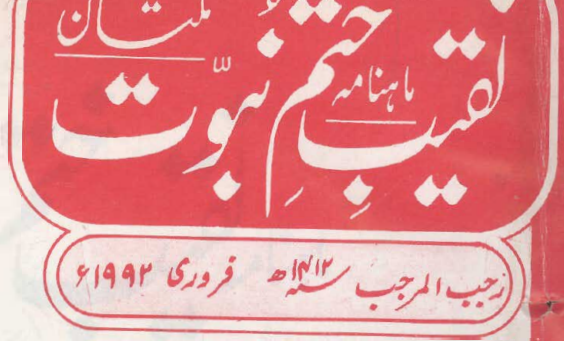 ماہنامہ
نقیب ختمِ نبوّت
ملتان
رجب المرجب ۱۴۱۲ھ فروری ۱۹۹۲ء